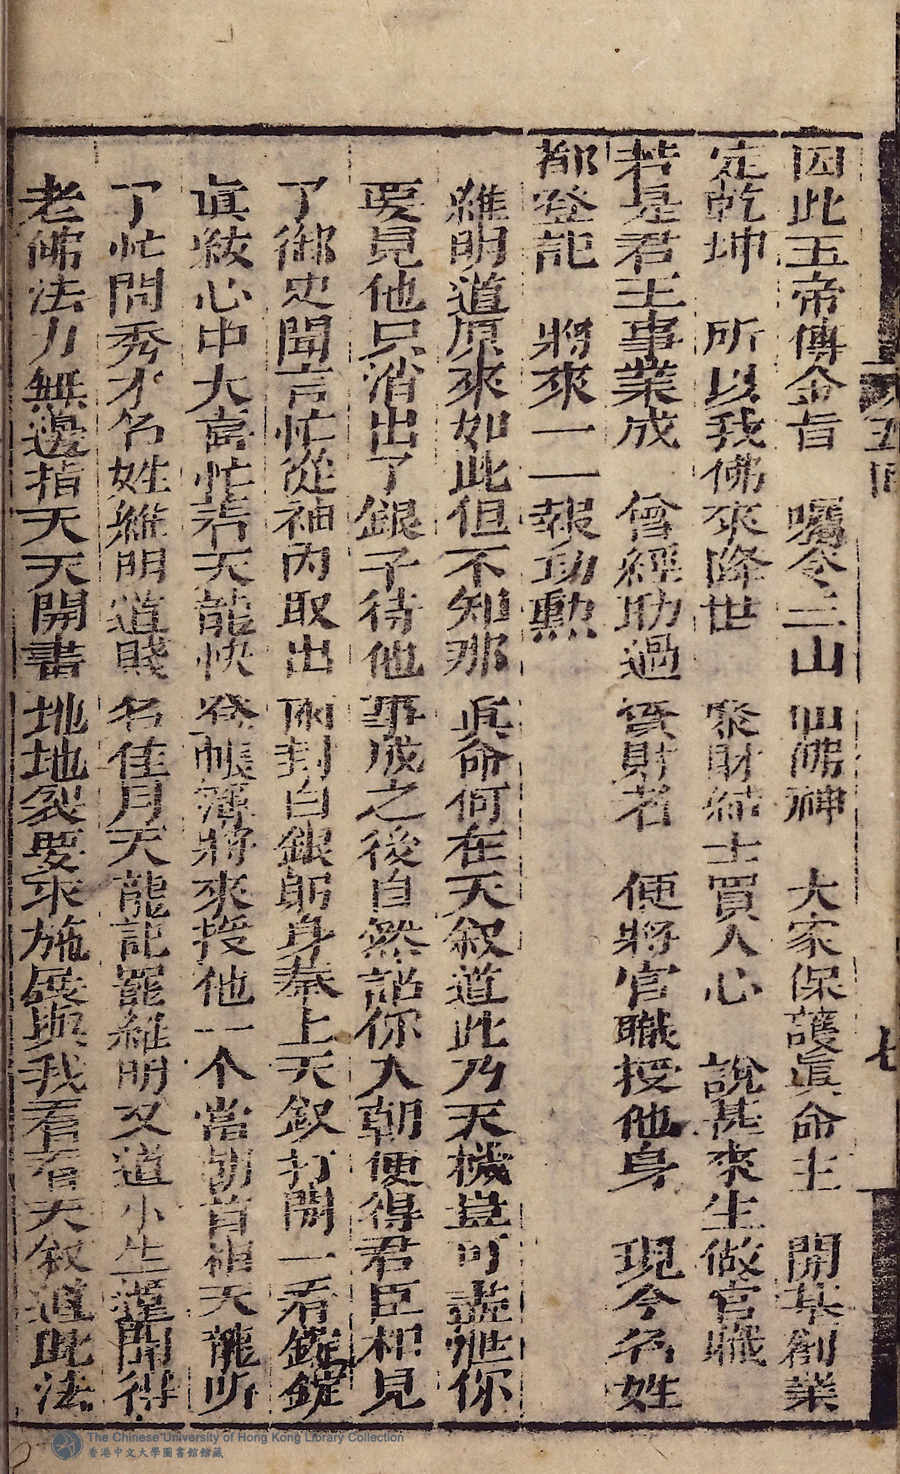 因此玉帝傳金旨 囑令三山仙佛神 大家保護眞命主 開基創業
定乾坤 所以我佛來降世 聚財結士買人心 說甚來生做官職
若是君王事業成 曾經助過資財者 便將官職授他身 現今名姓
都登記 將來一一報功勲
維明道原來如此但不知那眞命何在天叙道此乃天機豈可盡泄你
要見他只消出了銀子待他事成之後自然詔你入朝便得君臣相見
了御史聞言忙從袖內取出兩封白銀躬身奉上天叙打開一看錠錠
眞紋心中大喜忙若天龍快登帳簿將來授他一个當朝首相天龍听
了忙問秀才名姓維明道賤名佳月天龍記罷維明又道小生謹聞得
老佛法力無邊指天天開書地地裂要求施展與我看看天叙道此法
五回
七
The Chinese University of Hong Kong Library Collection
香港中文大學圖書館館藏